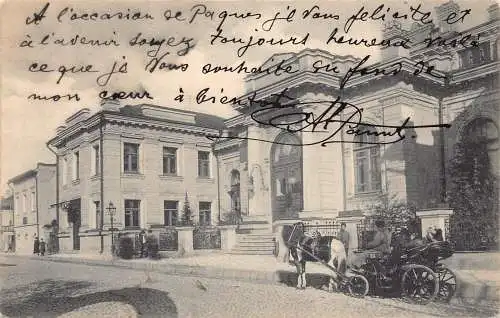 A l'occasion de Paques je Vous félicite et
à l'avenir soyez toujours heureux voilà
ce que je Vous souhaite du fond de
mon cœur à bientôt